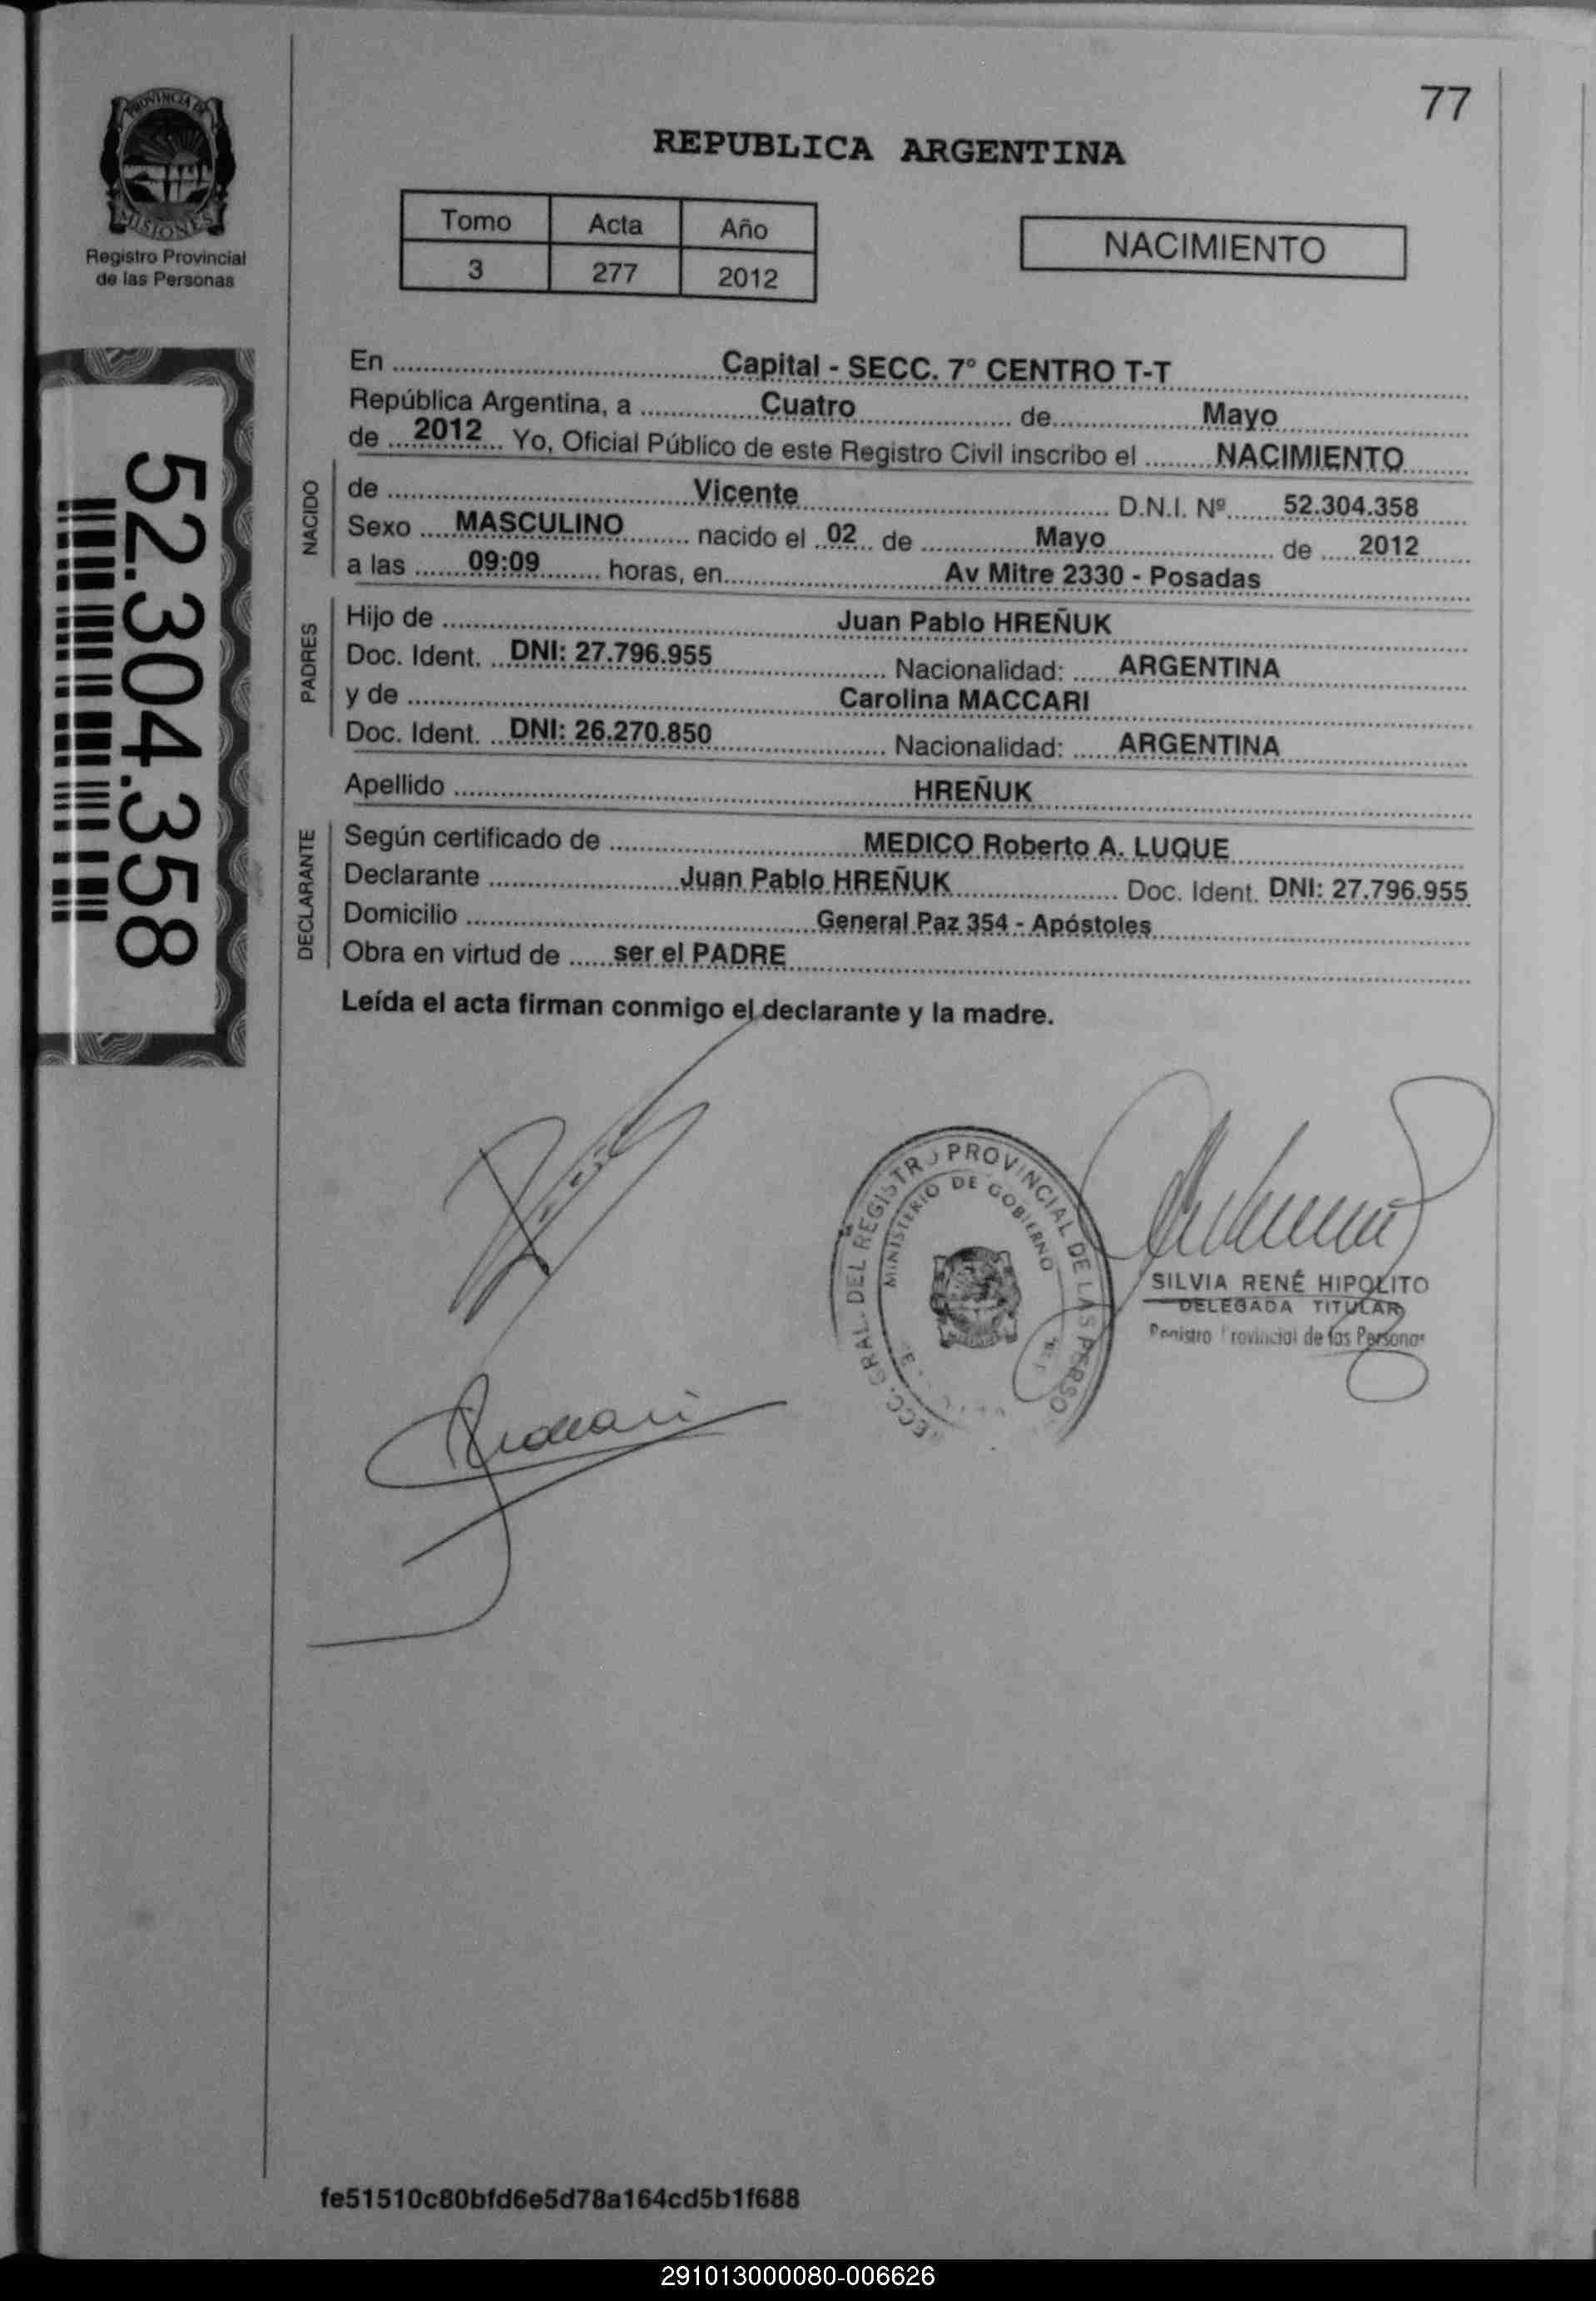 77
PROVINCIA DE
MISIONES
Registro Provincial
de las Personas
REPUBLICA ARGENTINA
Tomo Acta Año
3 277 2012
NACIMIENTO
52.304.358
En Capital - SECC. 7° CENTRO T-T
República Argentina, a Cuatro de Mayo
de 2012 Yo, Oficial Público de este Registro Civil inscribo el NACIMIENTO
NACIDO
de Vicente D.N.I. Nº 52.304.358
Sexo MASCULINO nacido el 02 de Mayo de 2012
a las 09:09 horas, en Av Mitre 2330 - Posadas
PADRES
Hijo de Juan Pablo HREÑUK
Doc. Ident. DNI: 27.796.955 Nacionalidad: ARGENTINA
y de Carolina MACCARI
Doc. Ident. DNI: 26.270.850 Nacionalidad: ARGENTINA
Apellido HREÑUK
DECLARANTE
Según certificado de MEDICO Roberto A. LUQUE
Declarante Juan Pablo HREÑUK Doc. Ident. DNI: 27.796.955
Domicilio General Paz 354 - Apóstoles
Obra en virtud de ser el PADRE
Leída el acta firman conmigo el declarante y la madre.
GRAL. DEL REGISTRO PROVINCIAL DE LAS PERSO
MINISTERIO DE GOBIERNO
SILVIA RENÉ HIPOLITO
DELEGADA TITULAR
Registro Provincial de las Personas
fe51510c80bfd6e5d78a164cd5b1f688
291013000080-006626